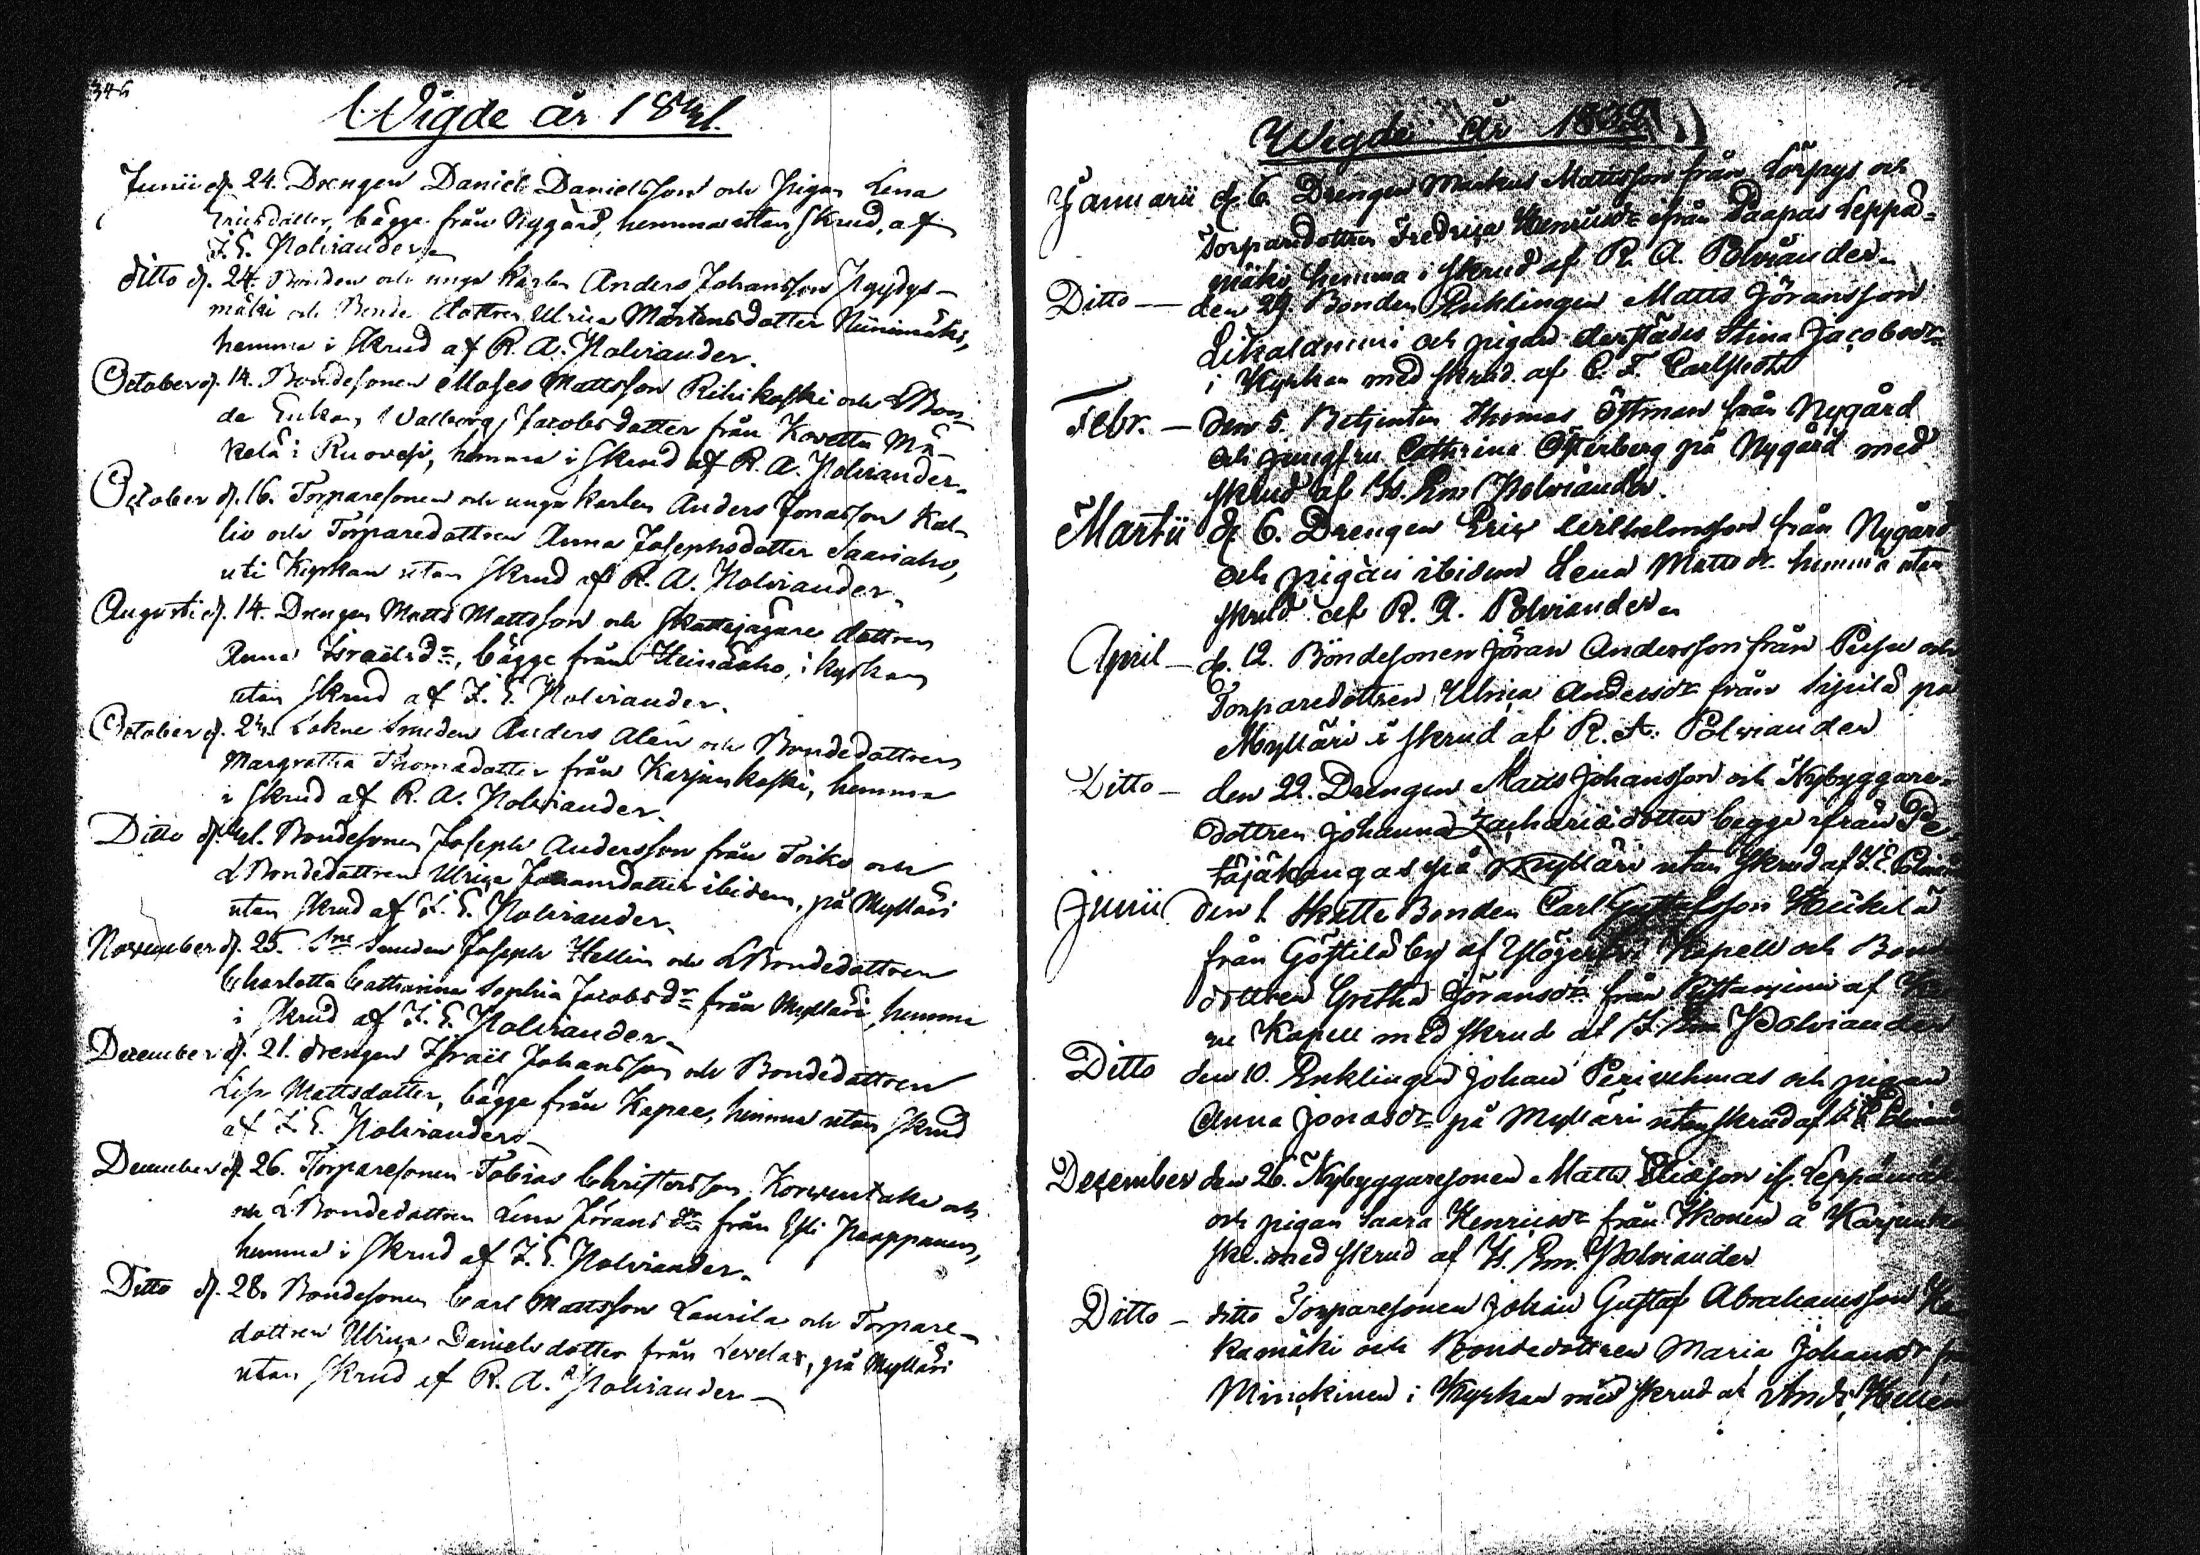 346
Wigde år 1831.
Junii d. 24. Drengen Daniel Danielsson och Pigan Lena
Ericsdotter, bägge från Nygård, hemma utan skrud, af
I. E. Polviander.
Ditto d. 24. Bonden och unga karlen Anders Johansson
mäki och Bonde dottren Ulrica Mårtensdotter Niinimäki,
hemma i skrud af R. A. Polviander.
October d. 14. Bondesonen Moses Mattsson Rihikoski och Bon-
de Enkan, Valborg Jacobsdotter från
i Ruovesi, hemma i skrud af R. A. Polviander.
October d. 16. Torparesonen och unga karlen Anders Jonasson Kal-
lio och Torparedottren Anna Josephsdotter Saariaho,
uti Kyrkan utan skrud af R. A. Polviander.
Augusti d. 14. Drengen Matts Mattsson och Skattejägare dottren
Anna Israelsdr, bägge från Heinäaho, i kyrkan
utan skrud af I. E. Polviander.
October d. Sokne Smeden Anders Alén och Bondedottren
Margretha Thomædotter från Karjenkoski, hemma
i skrud af R. A. Polviander.
Ditto d. Bondesonen Joseph Andersson från Toiko och
Bondedottren Ulrica Johansdotter ibidem, på Mylläri
utan skrud af I. E. Polviander.
November d. 25. Sne Smeden Joseph Hellin och Bondedottren
Charlotta Catharina Sophia Jacobsdr från Mylläri, hemma
i skrud af I. E. Polviander.
December d. 21. drengen Israël Johansson och Bondedottren
Lisa Mattsdotter, bägge från Kapee, hemma utan skrud
af I. E. Polviander.
December d. 26. Torparesonen Tobias Christersson och
och Bondedottren Lena Göransdr från Paappanen,
hemma i skrud af I. E. Polviander.
Ditto d. 28. Bondesonen Carl Mattsson Laurila och Torpare-
dottren Ulrica Danielsdotter från Levelax, på Mylläri
utan skrud af R. A. Polviander
Wigde år 1832
Januarii d. 6. Drengen Markus Mattsson från Lörpys och
Torparedottren Fredrica Henricsdr ifrån Paapas Leppä-
mäki, hemma i skrud af R. A. Polviander.
Ditto — den 29. Bonden Enklingen Matts Jöransson
och pigan derstädes Stina Jacobsdr
i Kyrkan med skrud af C. F. Carlstedt
Febr. — den 5. Betjenten Thomas Östman från Nygård
och jungfru Cathrina Österberg på Nygård med
skrud af Is. Em. Polviander.
Martii d. 6. Drengen Eric Wilhelmsson från Nygård
och pigan ibidem Lena Mattsdr. hemma utan
skrud af R. A. Polviander
April — d. 12. Bondesonen Jöran Andersson från och
Torparedottren Ulrica Andersdr från Sipilä på
Mylläri i skrud af R. A. Polviander
Ditto — den 22. Drengen Matts Johansson och Nybyggare-
dottren Johanna Zachariædotter begge ifrån Pe-
täjäkangas på Mylläri utan skrud af I. E.
Junii den 1. Skatte Bonden Carl Gustafsson Heikilä
från Göstilä by af Kapell och
dottren Gretha Jöransdr från af
Kapell med skrud af I. Em Polviander
Ditto den 10. Enklingen Johan och pigan
Anna Jonasdr på Mylläri utan skrud af I. E.
December den 26. Nybyggaresonen Matts Eliæson
och pigan Saara Henricsdr från Ikonen å
med skrud af Is. Em. Polviander
Ditto — ditto Torparesonen Johan Gustaf Abrahamsson
kamäki och Bondedottren Maria Johansdr
Minckinen i Kyrkan med skrud af And.